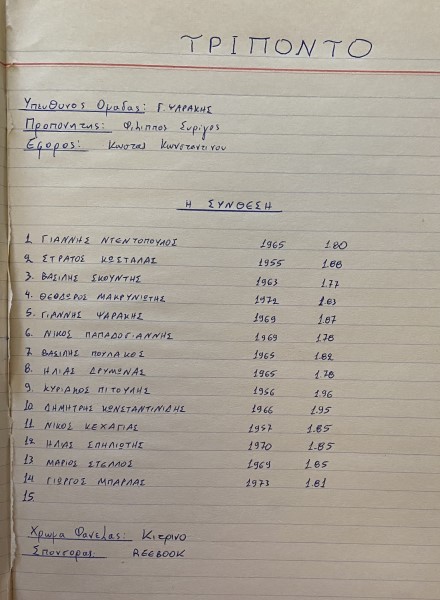 ΤΡΙΠΟΝΤΟ
Υπευθυνος Ομαδας: Γ. ΨΑΡΑΚΗΣ
Προπονητης: Φιλιππος Συριγος
Εφορος: Κωστας Κωνσταντινου
Η ΣΥΝΘΕΣΗ
1. ΓΙΑΝΝΗΣ ΝΤΕΝΤΟΠΟΥΛΟΣ 1965 1.80
2. ΣΤΡΑΤΟΣ ΚΩΣΤΑΛΑΣ 1955 1.88
3. ΒΑΣΙΛΗΣ ΣΚΟΥΝΤΗΣ 1963 1.77
4. ΘΕΟΔΩΡΟΣ ΜΑΚΡΥΝΙΩΤΗΣ 1972 1.83
5. ΓΙΑΝΝΗΣ ΨΑΡΑΚΗΣ 1969 1.87
6. ΝΙΚΟΣ ΠΑΠΑΔΟΓΙΑΝΝΗΣ 1969 1.78
7. ΒΑΣΙΛΗΣ ΠΟΥΛΑΚΟΣ 1965 1.82
8. ΗΛΙΑΣ ΔΡΥΜΩΝΑΣ 1965 1.78
9. ΚΥΡΙΑΚΟΣ ΠΙΤΟΥΛΗΣ 1956 1.96
10. ΔΗΜΗΤΡΗΣ ΚΩΝΣΤΑΝΤΙΝΙΔΗΣ 1966 1.95
11 ΝΙΚΟΣ ΚΕΧΑΓΙΑΣ 1957 1.85
12 ΗΛΙΑΣ ΣΠΗΛΙΩΤΗΣ 1970 1.85
13 ΜΑΡΙΟΣ ΣΤΕΛΛΟΣ 1969 1.85
14 ΓΙΩΡΓΟΣ ΜΠΑΡΛΑΣ 1973 1.81
15.
Χρωμα Φανελας: Κιτρινο
Σπονσορας: REEBOOK